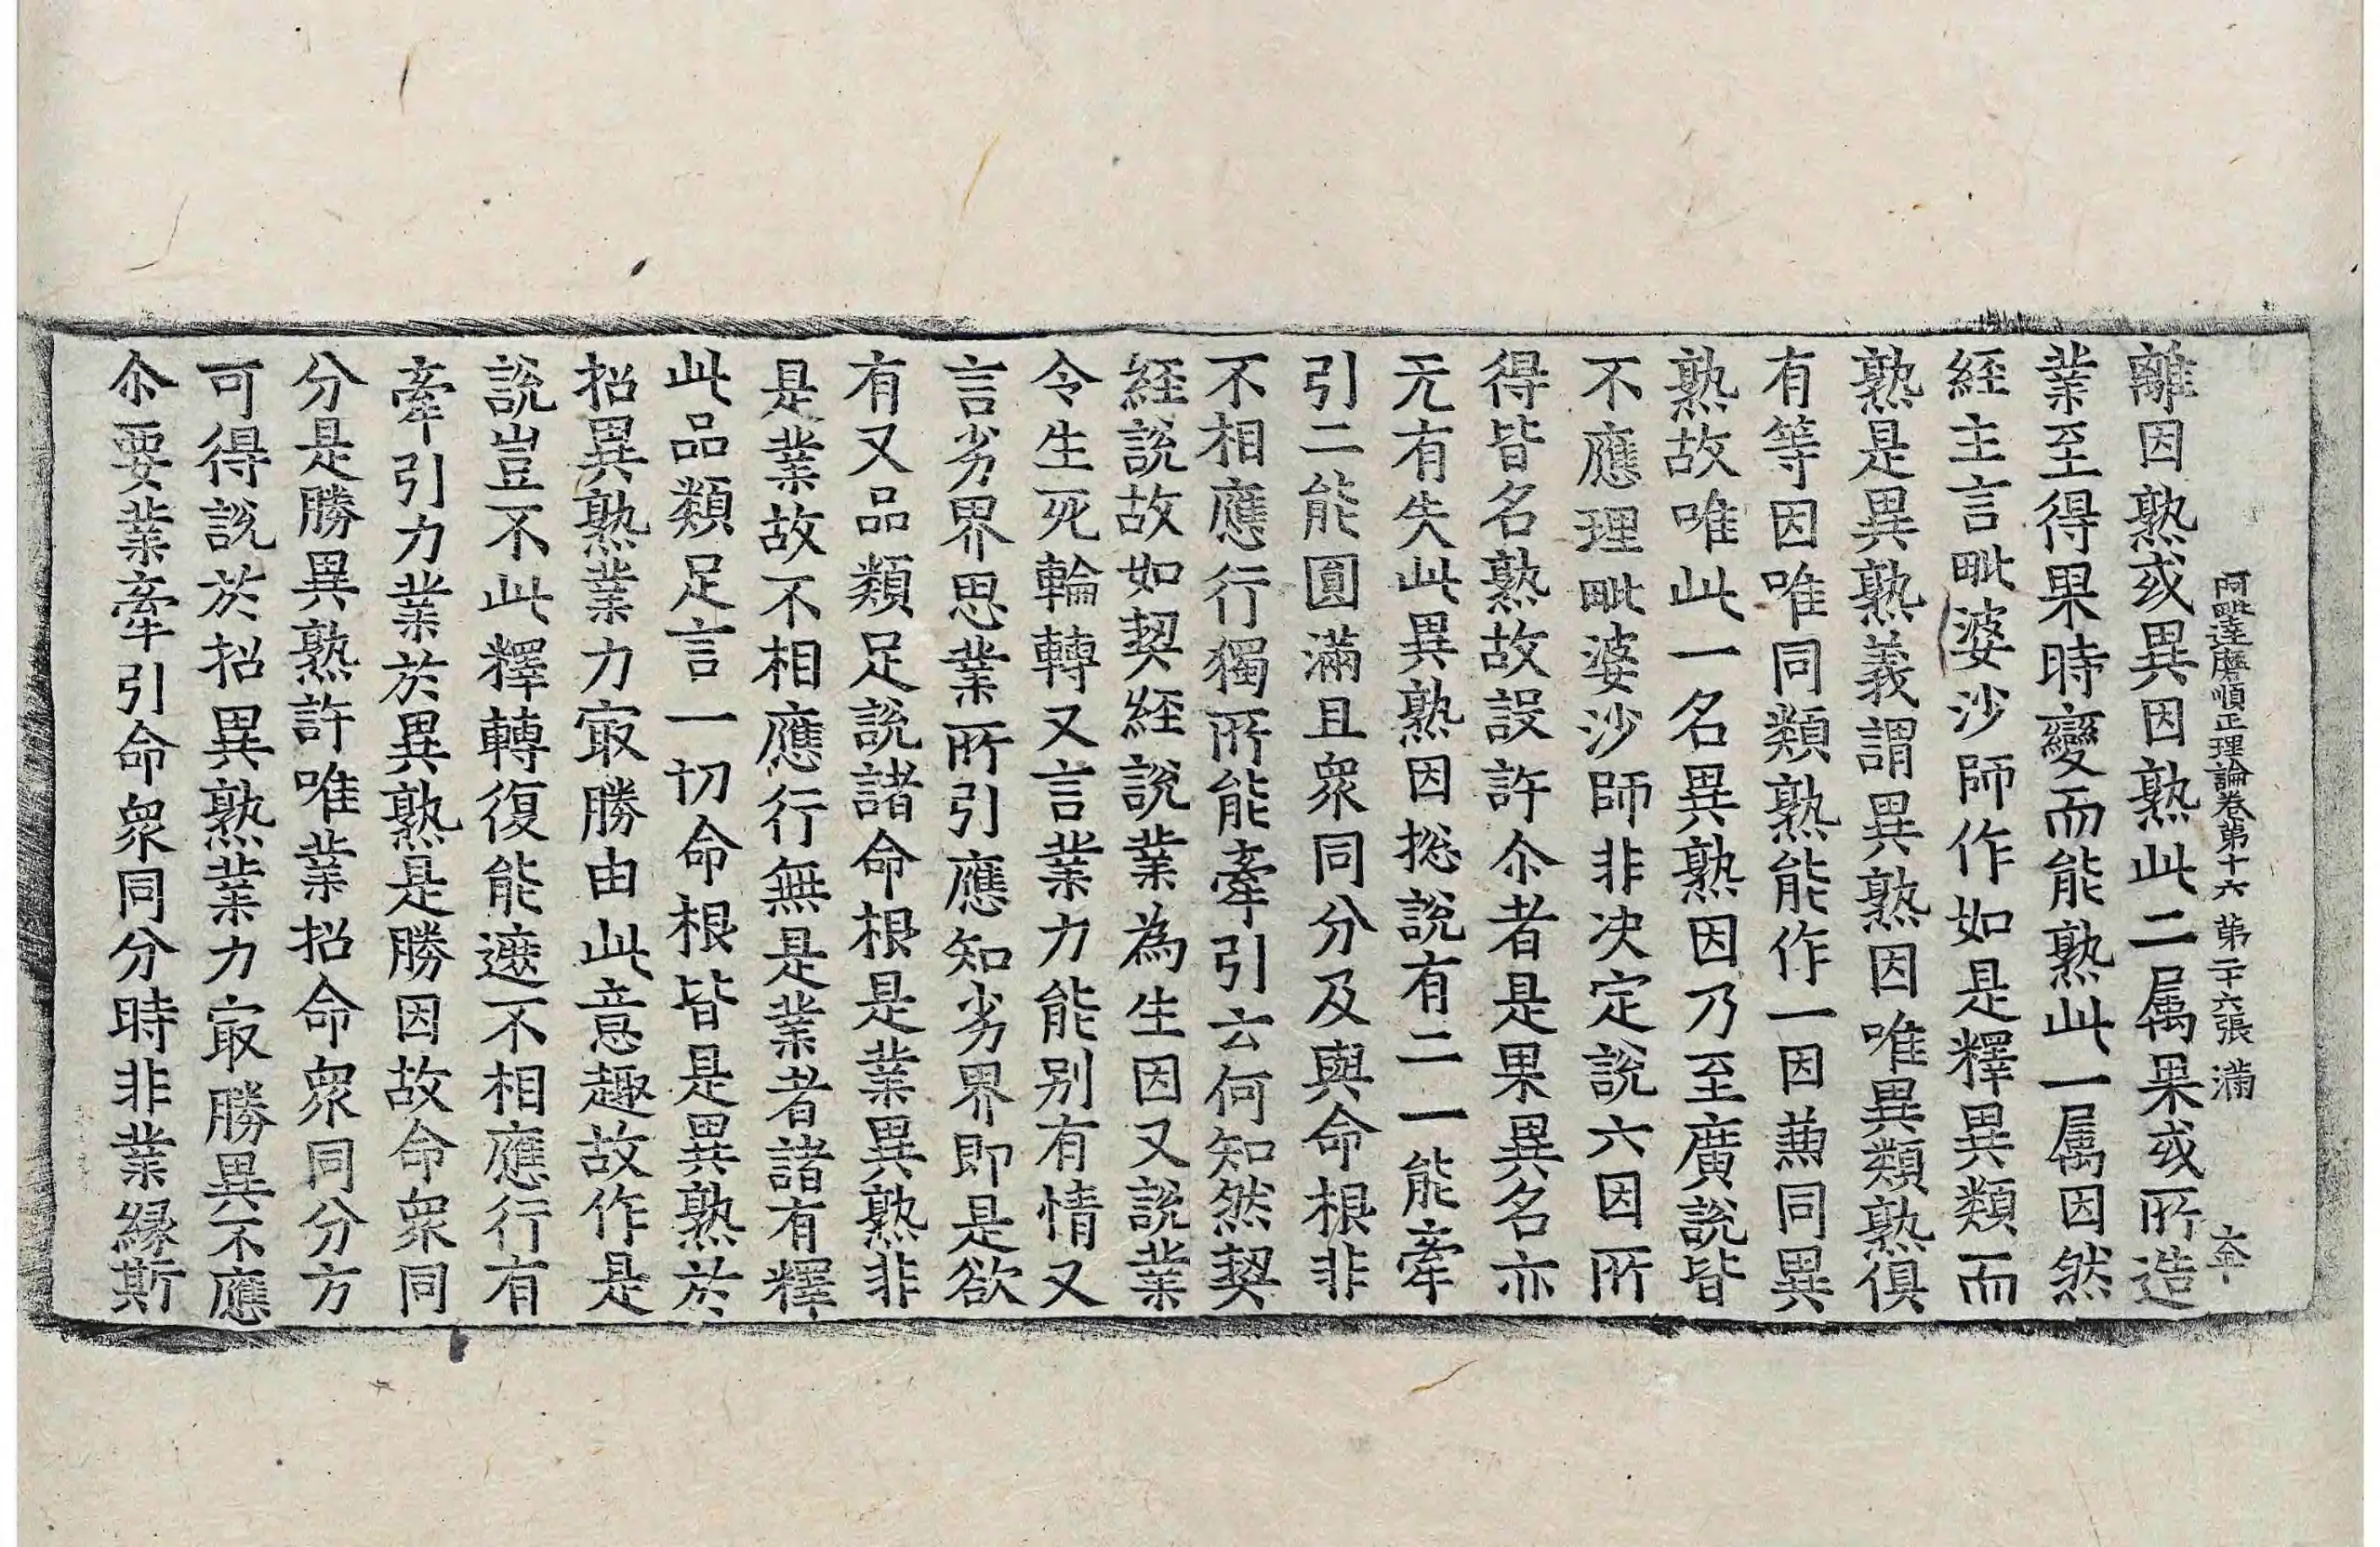 阿毗達磨順正理論卷第十六 第二十六張 滿
離因熟或異因熟此二属果或所造
業至得果時變而能熟此一属因然
經主言毗婆沙師作如是釋異類而
熟是異熟義謂異熟因唯異類熟俱
有等因唯同類熟能作一因兼同異
熟故唯此一名異熟因乃至廣說皆
不應理毗婆沙師非決定說六因所
得皆名熟故設許尒者是果異名亦
无有失此異熟因捴說有二一能牽
引二能圓滿且衆同分及與命根非
不相應行獨所能牽引云何知然契
經說故如契經說業為生因又說業
令生死輪轉又言業力能别有情又
言劣界思業所引應知劣界即是欲
有又品類足說諸命根是業異熟非
是業故不相應行無是業者諸有釋
此品類足言一切命根皆是異熟於
招異熟業力㝡勝由此意趣故作是
說豈不此釋轉復能遮不相應行有
牽引力業於異熟是勝因故命衆同
分是勝異熟許唯業招命衆同分方
可得說於招異熟業力㝡勝異不應
尒要業牽引命衆同分時非業縁斯